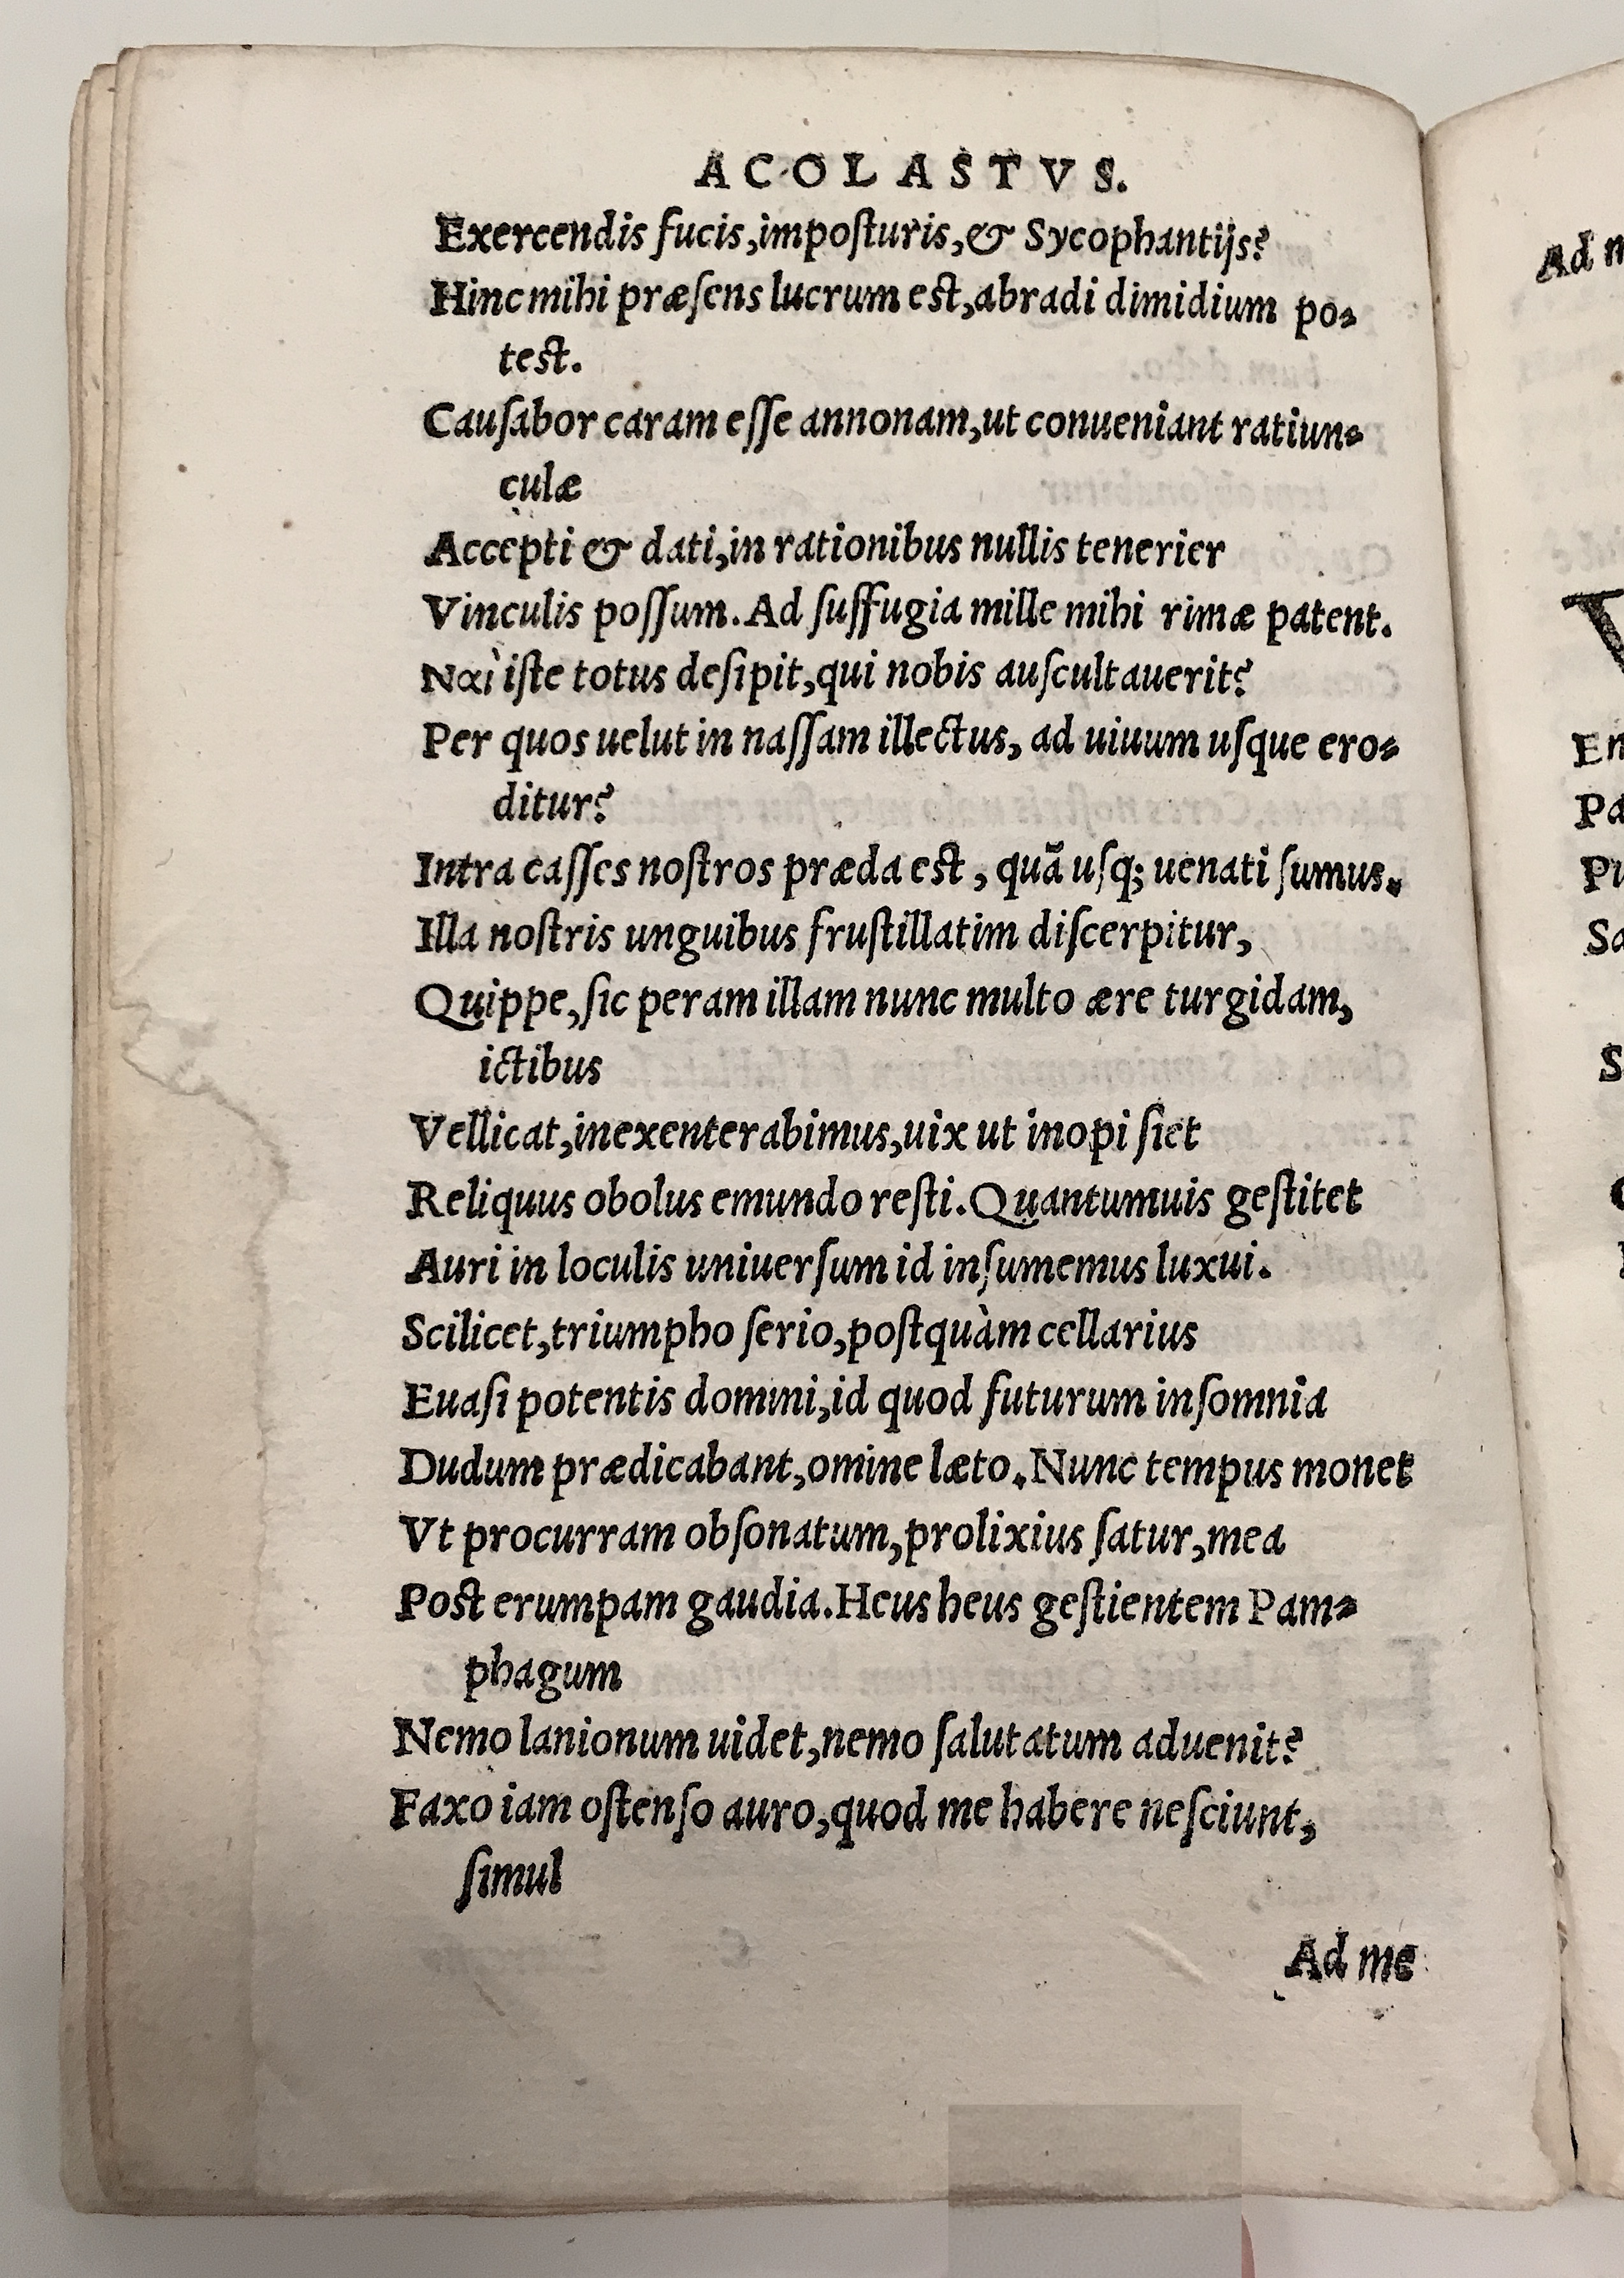 ACOLASTVS.
Exercendis fucis,imposturis,& Sycophantijs?
Hinc mihi præsens lucrum est,abradi dimidium po-
test.
Causabor caram esse annonam,ut conueniant ratiun-
culæ
Accepti & dati,in rationibus nullis tenerier
Vinculis possum. Ad suffugia mille mihi rimæ patent.
Nαὶ iste totus desipit,qui nobis auscultauerit?
Per quos uelut in nassam illectus, ad uiuum usque ero-
ditur?
Intra casses nostros præda est, quã usq; uenati sumus.
Illa nostris unguibus frustillatim discerpitur,
Quippe,sic peram illam nunc multo ære turgidam,
ictibus
Vellicat,inexenterabimus,uix ut inopi siet
Reliquus obolus emundo resti. Quantumuis gestitet
Auri in loculis uniuersum id insumemus luxui.
Scilicet,triumpho serio,postquàm cellarius
Euasi potentis domini,id quod futurum insomnia
Dudum prædicabant,omine læto. Nunc tempus monet
Vt procurram obsonatum,prolixius satur,mea
Post erumpam gaudia. Heus heus gestientem Pam-
phagum
Nemo lanionum uidet,nemo salutatum aduenit?
Faxo iam ostenso auro,quod me habere nesciunt,
simul
Ad me
Ad m
En
Pa
Sa
S